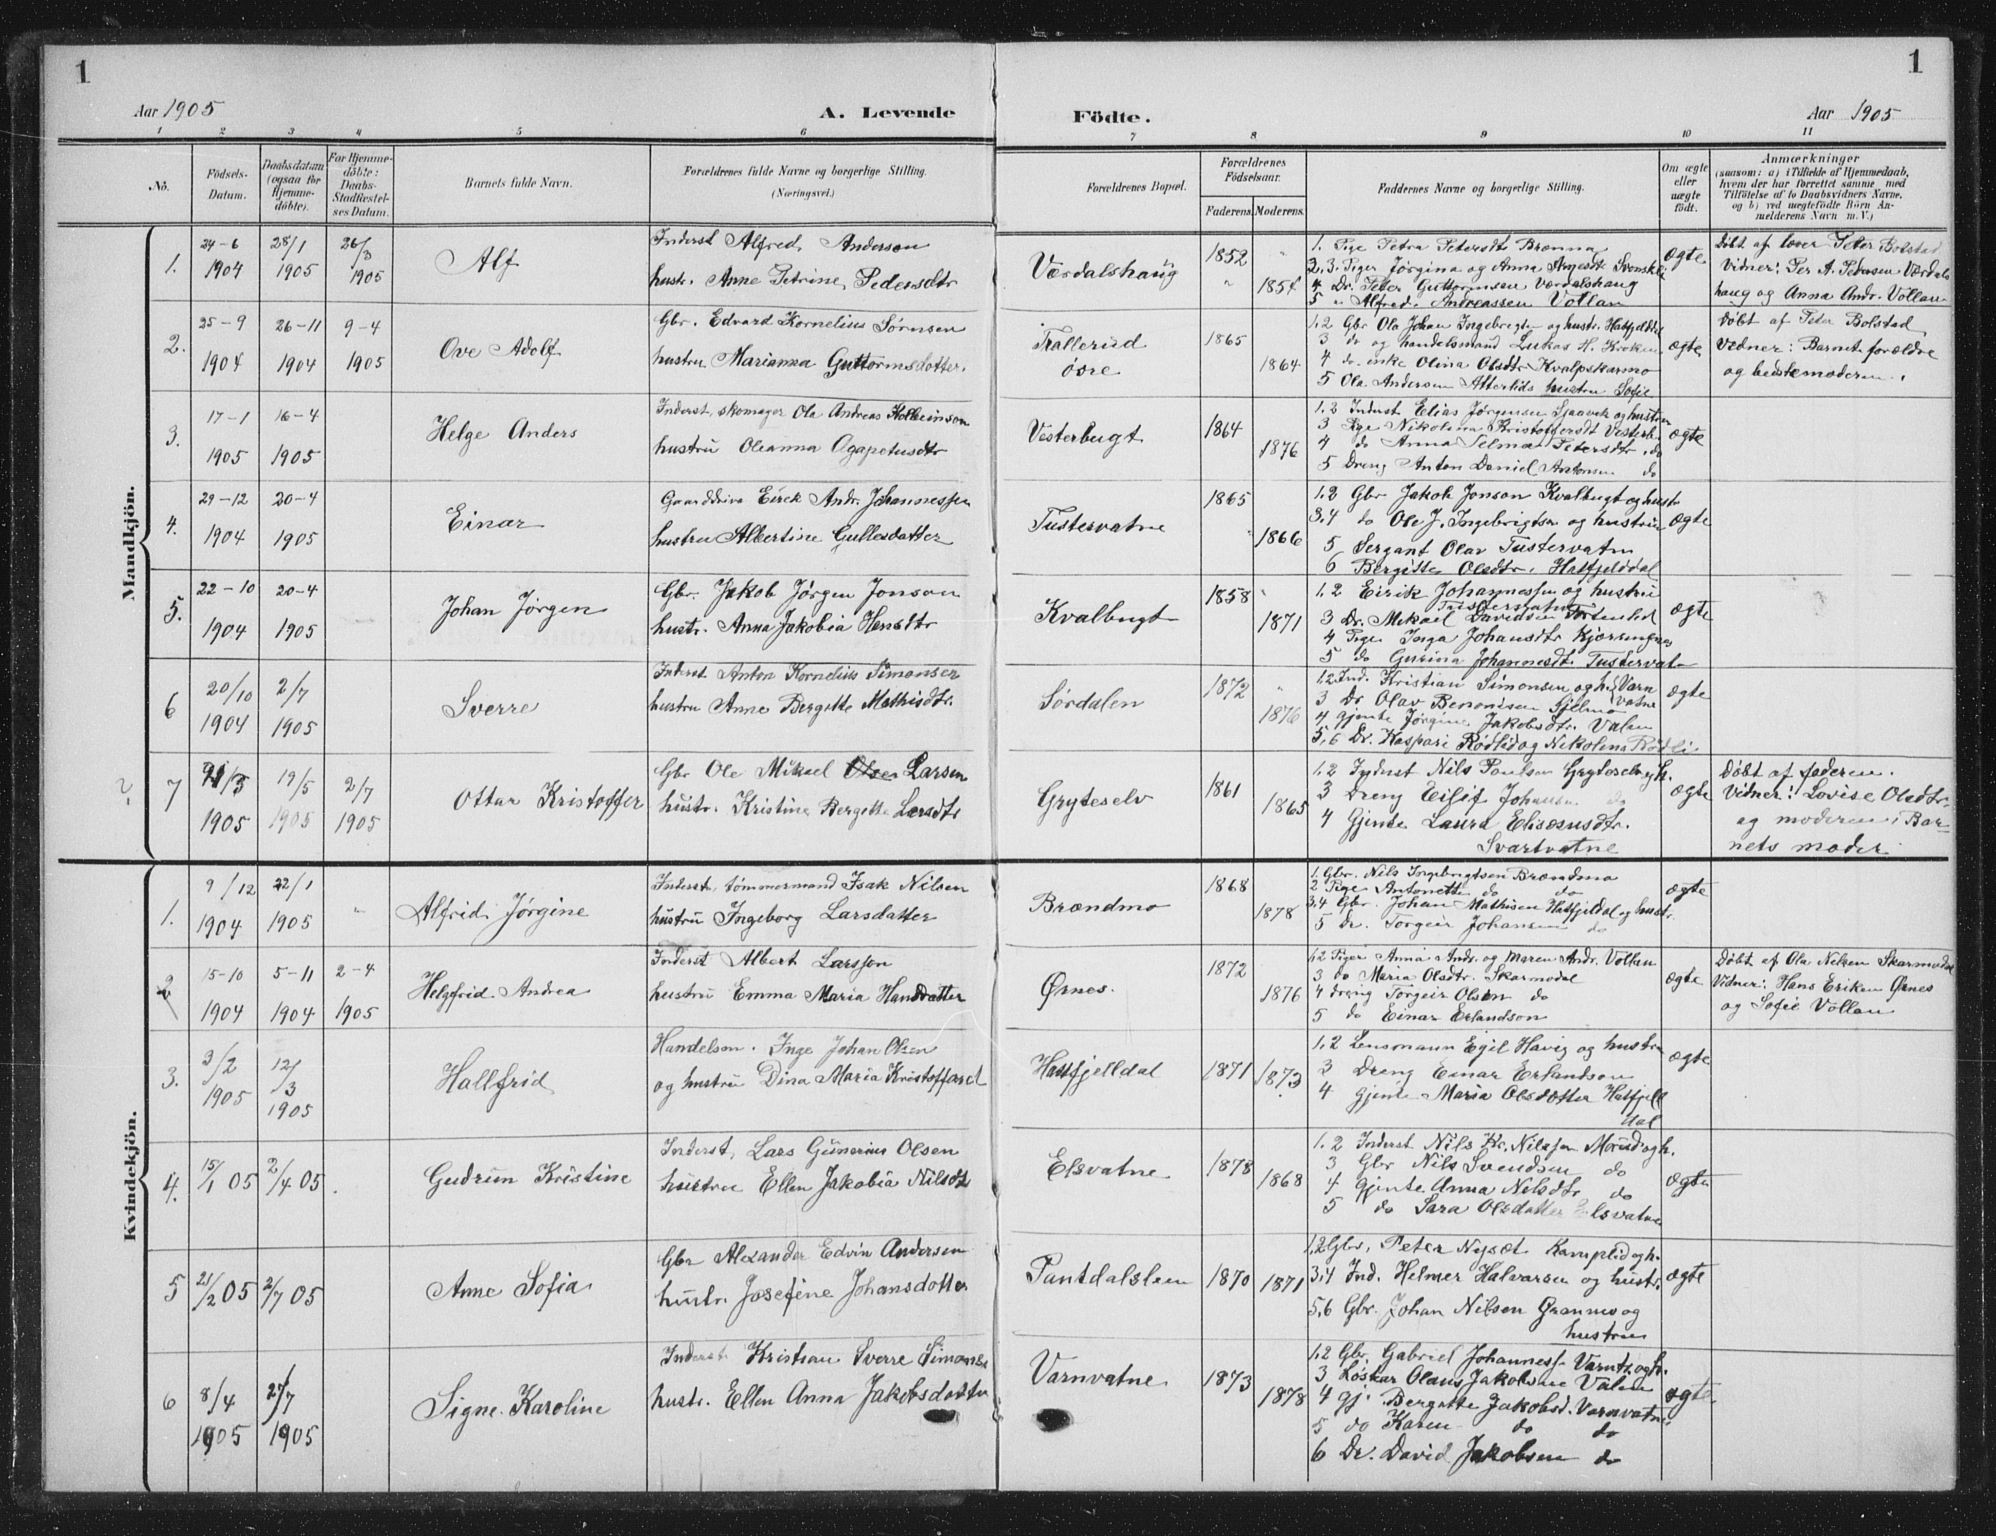 1
1
Aar 1905
A. Levende
Födte.
Aar 1905
1 2 3 4 5 6 7 8 9 10 11
No.
Födsels-
Datum.
Daabsdatum
(ogsaa for
Hjemme-
döbte).
For Hjemme-
döbte:
Daabs-
Stadfæstel-
ses Datum.
Barnets fulde Navn.
Forældrenes fulde Navne og borgerlige Stilling.
(Næringsvei.)
Forældrenes Bopæl.
Forældrenes
Födselsaar.
Faderens. Moderens.
Faddernes Navne og borgerlige Stilling.
Om ægte
eller
uægte
födt.
Anmærkninger
(saasom: a) i Tilfælde af Hjemmedaab,
hvem der har forrettet samme med
Tilföielse af to Daabsvidners Navne,
og b) ved uægtefödte Börn An-
melderens Navn m. V.)
Mandkjön.
1.
24-6
1904
28/1
1905
26/3
1905
Alf
Inderst Alfred Anderson
hustr. Anne Petrine Pedersdtr
Værdalshaug
1852
1. Pige Petra Petersdt Brenna
2.3. Piger Jørgina og Anna
4 Dr. Peter Guttormsen Værdalshaug
5 " Alfred Andreassen Vollan
ægte
Døbt af lærer Peter Bolstad
Vidner: Per A. Pedersen Værdals
haug og Anna Andr. Vollan
2.
25-9
1904
26-11
1904
9-4
1905
Ove Adolf
Gbr. Edvard Kornelius Sørnsen
hustru Marianna Guttormsdatter.
Trallerud
øvre
1865
1864
1,2 Gbr Ola Johan Ingebrigtsn og hustr. Hatfjelddal
3 do og handelsmand Lukas H. Kroken
4 do. enke Olina Olsdtr Kvalpskarmo
5 Ola Andersen Atterlids hustru Sofie
ægte
Døbt af Peter Bolstad
Vidner: Barnets forældre
og bedstemoderen.
3.
17-1
1905
16-4
1905
Helge Anders
Inderst, skomager Ola Andreas Kolbeinson
hustru Oleanna Agapetusdtr
Vesterbugt
1864
1876
1,2 Inderst Elias Jørgensen Sjaavik og hustru
3 Pige Nikolina Kristoffersdt Vesterb.
4 do Anna Selma Petersdtr. do
5 Dreng Anton Daniel Antonsen do
ægte
4.
29-12
1904
20-4
1905
Einar
Gaarddriver Eirek Andr. Johannessen
hustru Albertine Gullesdatter
Tustervatne
1865
1866
1,2 Gbr Jakob Jonson Kvalbugt og hustr
3,4 do Ole J. Ingebrigtsn og hustru
5 Sergant Olav Tustervatn
6 Bergitte Olsdtr. Hatfjelddal
ægte
5.
22-10
1904
20-4
1905
Johan Jørgen
Gbr. Jakob Jørgen Jonson
hustr. Anna Jakobia Hansdtr
Kvalbugt
1858
1871
1,2 Eirik Johannessen og hustru
Tustervatne
3 Dr. Mikael Davidsen
4 Pige Inga Johansdtr
5 do Gurina Johannesdt. Tustervat
ægte
6
20/10
1904
2/7
1905
Sverre
Inderst Anton Kornelius Simonsen
hustru Anne Bergitte Mathisdtr.
Sørdalen
1872
1876
1,2 Ind. Kristian Simonsen og h. Varn
vatne
3 Dr Olav Benonisen
4 gjente Jørgine Jakobsdtr. Valen
5,6 Dr. Kaspari Rødli og Nikolena Rødli
ægte
7
1905
19/5
1905
2/7
1905
Ottar Kristoffer
Gbr Ole Mikael Olsen Larsen
hustr. Kristine Bergitte Larsdtr
Gryteselv
1861
1865
1,2 Inderst Nils Paulsen Gryteselv og h.
3 Dreng Eilif Johansen do
4 Gjente Laura Eliseusdtr.
Svartvatne
ægte
Døbt af faderen.
Vidner: Lovise Olsdtr
og moderen i Bar-
nets moder
Kvindekjön.
1.
9/12
1904
22/1
1905
"
Alfrid Jørgine
Inderst, tømmermand Isak Nilsen
hustru Ingeborg Larsdatter
Brændmo
1868
1878
1. Gbr. Nils Ingebrigtsen Brændmo
2 Pige Antonette do do
3,4 Gbr. Johan Mathisen Hatfjeldal og hustr.
5 Dr. Torgeir Johansen do
ægte
2
15-10
1904
5-11
1904
2-4
1905
Helgfrid Andrea
Inderst Albert Larssen
hustru Emma Maria Hansdatter
Ørnes.
1872
1876
1,2 Piger Anna Andr. og Maren Andr. Vollan
3 do Maria Olsdtr. Skarmodal
4 dreng Torgeir Olsen do
5 do Einar Erlandson
ægte
Døbt af Ola Nelsen Skarmodal
Vidner: Hans Eriksen Ørnes
og Sofie Vollan
3.
3/2
1905
12/3
1905
Hallfrid
Handelsm. Inge Johan Olsen
og hustru Dina Maria Kristoffersd
Hatfjelldal
1871
1873
1,2 Lensmann Egil Havig og hustru
3 Dreng Einar Erlandson
4 gjente Maria Olsdatter Hatfjell
dal
ægte
4.
15/1 05
2/4 05
Gudrun Kristine
Inderst, Lars Gunerius Olsen
hustru Ellen Jakobia Nilsdt
Elsvatne
1878
1868
1,2 Inderst Nils Kr. Nilssen og h.
3 Gbr Nils Svendsen do
4 gjente Anna Nilsdtr do
5 do Sara Olsdatter Elsvatne
ægte
5
21/2 05
2/7 05
Anne Sofia
Gbr Alexander Edvin Andersen
hustr. Josefine Johansdatter
Pantdalslien
1870
1871
1,2 Gbr. Peter Nysæt Kamplid og h.
3,4 Ind. Helmer Halvarsen og hustr.
5,6 Gbr. Johan Nilsen Grannes og
hustru
ægte
6
8/4
1905
2/7
1905
Signe Karoline
Inderst Kristian Sverre Simons
hustr. Ellen Anna Jakobsdatter
Varnvatne
1873
1878
1,2 Gbr. Gabriel Johanness. Varntr. og h.
3 Løskar Olaus Jakobsen Valen
4 gj. Bergitte Jakobsd. Varnvatne
5 do Karen do do
6 Dr. David Jakobsen do
ægte